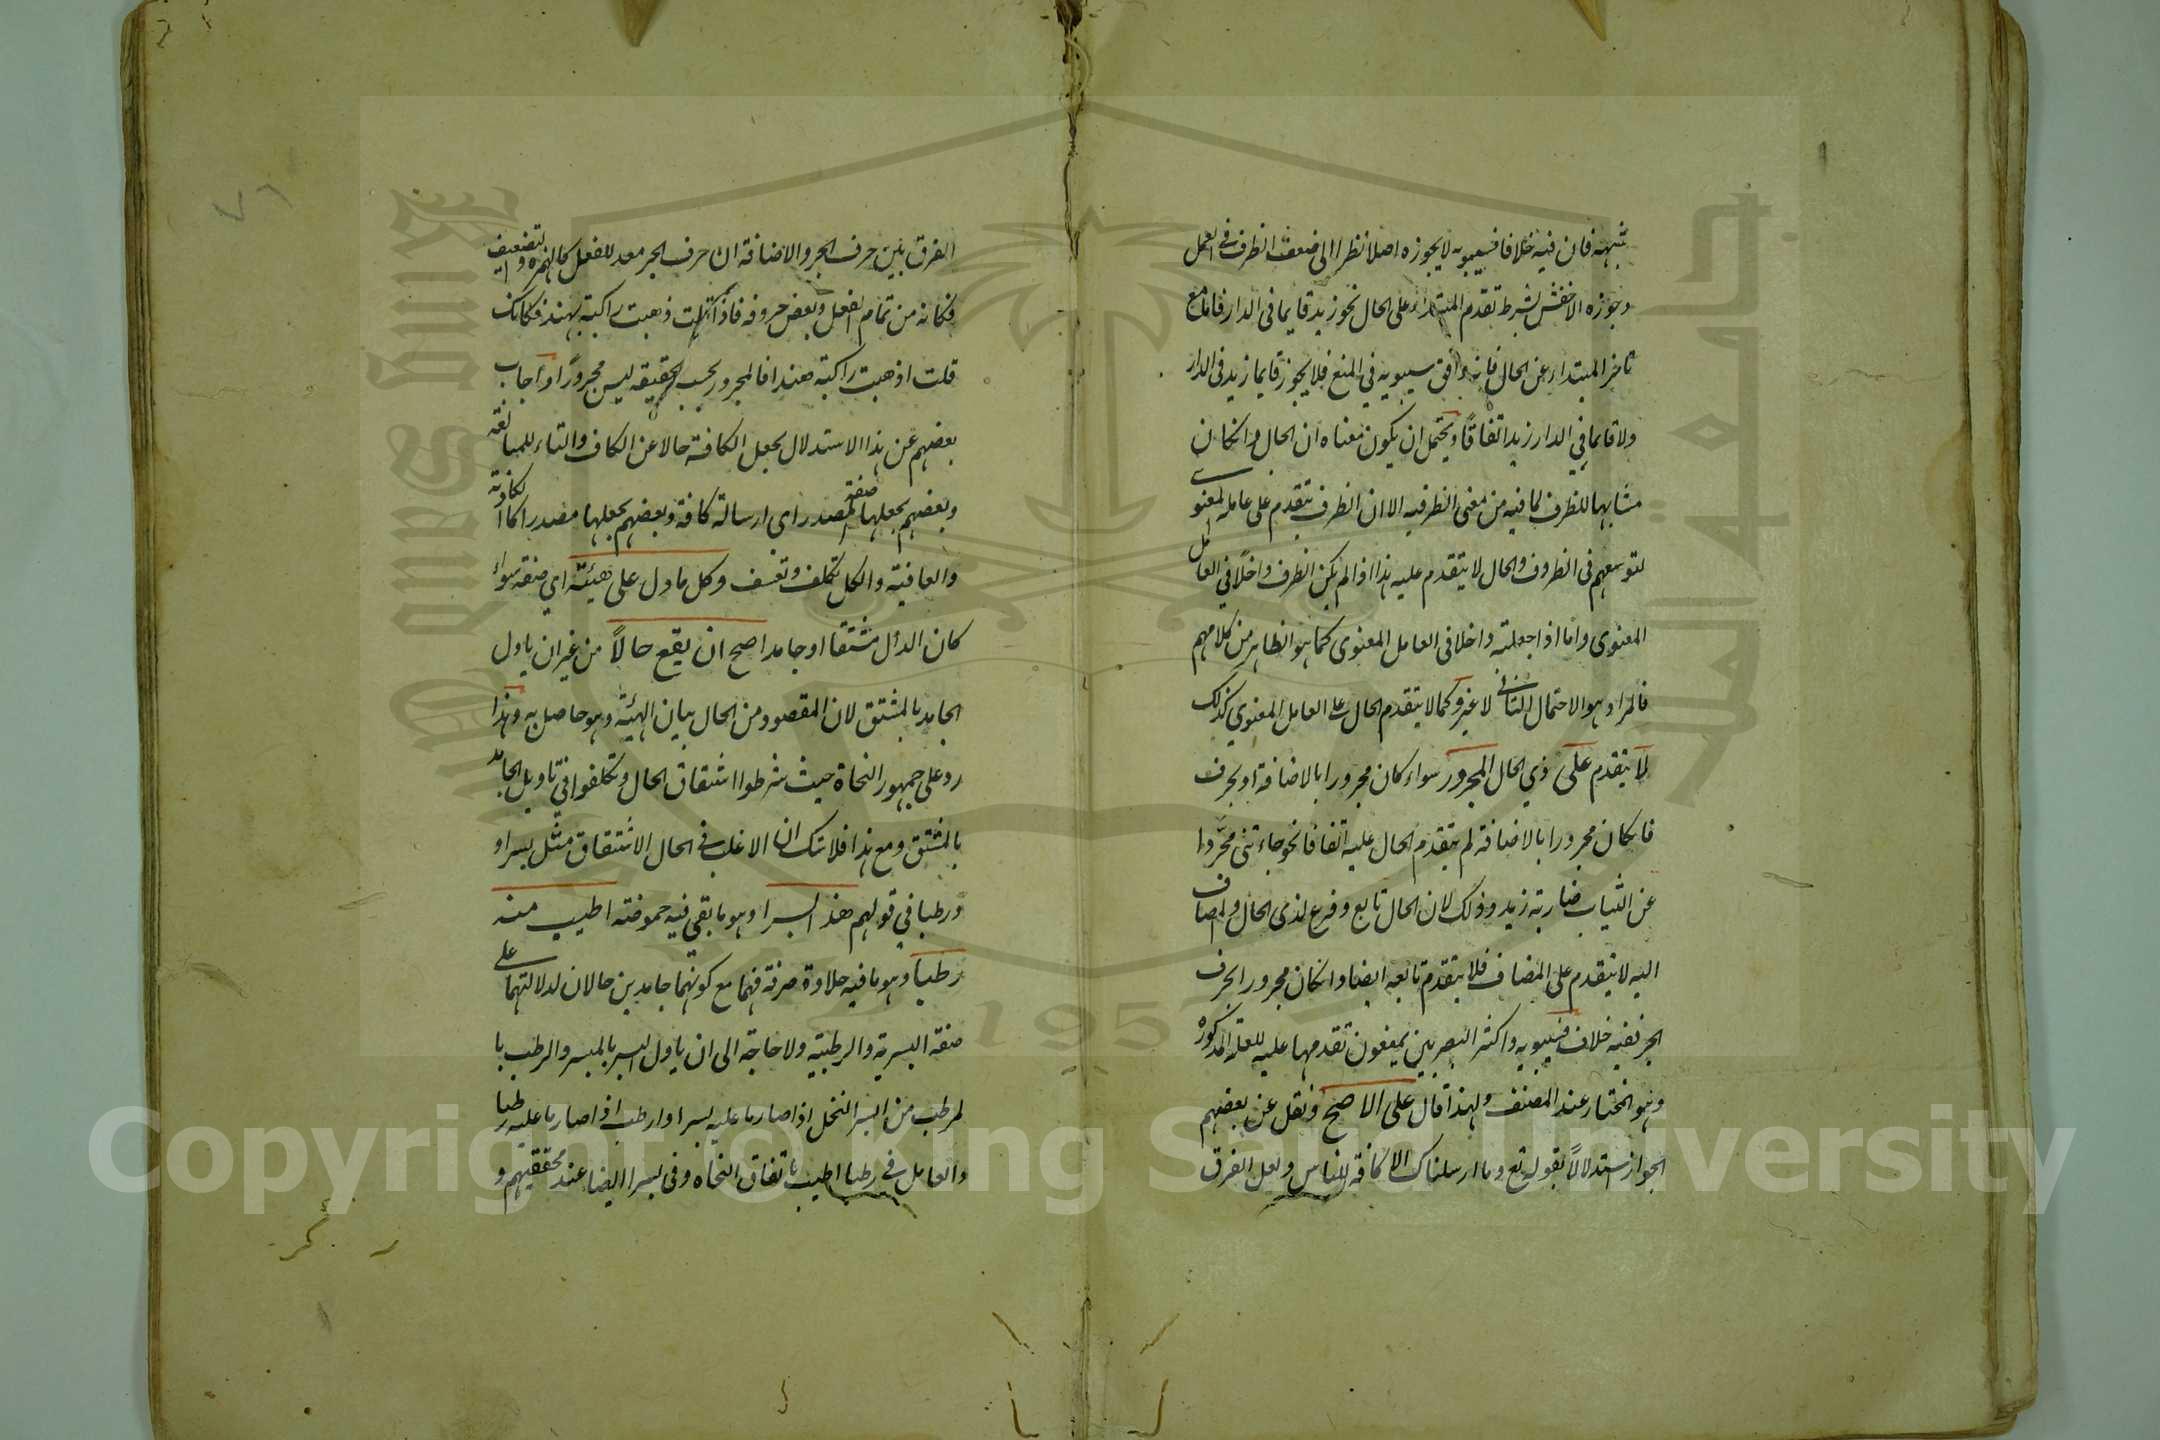 شبهه فان فيه خلافا فسيبويه لا يجوزه اصلا نظرا الى ضعف الظرف في العمل
وجوزه الاخفش بشرط تقدم المبتداء على الحال نحو زيد قايما في الدار فاما مع
تاخر المبتداء عن الحال فانه وافق سيبويه في المنع فلا يجوز قايما زيد في الدار
ولا قايما في الدار زيد اتفاقًا ويحتمل ان يكون معناه ان الحال وانكان
مشابها للظرف لما فيه من معنى الظرفيه الا ان الظرف يتقدم على عامله المعنوى
لتوسعهم في الظروف والحال لا يتقدم عليه هذا اذا لم يكن الظرف داخلًا في العامل
المعنوى واما اذا جعلته داخلا في العامل المعنوى كما هو الظاهر من كلامهم
فالمراد هو الاحتمال الثاني لا غير وكما لا يتقدم الحال على العامل المعنوي كذلك
لا يتقدم على ذي الحال المجرور سواء كان مجرورا بالاضافة او بحرف
فانكان مجرورا بالاضافة لم يتقدم الحال عليه اتفاقا نحو جاءتني مجردا
عن الثياب ضاربة زيد وذلك لان الحال تابع وفرع لذى الحال والمضاف
اليه لا يتقدم على المضاف فلا يتقدم تابعه ايضا وانكان مجرورا بحرف
الجر ففيه خلاف فسيبويه واكثر البصريين يمنعون تقدمها عليه للعلة المذكورة
وهو المختار عند المصنف ولهذا قال على الاصح ونقل عن بعضهم
الجواز استدلالًا بقوله تع وما ارسلناك الا كافة للناس ولعل الفرق
الفرق بين حرف الجر والاضافة ان حرف الجر معد للفعل كالهمزة والتضعيف
فكانه من تمام الفعل وبعض حروفه فاذا قلت ذهبت راكبة بهند فكانك
قلت اذهبت راكبة هندا فالمجرور بحسب الحقيقه ليس مجرورًا واجاب
بعضهم عن هذا الاستدلال بجعل الكافة حالا عن الكاف والتاء للمبالغة
وبعضهم بجعلها صفة لمصدر اى ارسالة كافة وبعضهم بجعلها مصدرا كالكاذبة
والعافية والكل تكلف وتعسف وكل ما دل على هيئة اي صفه سواء
كان الدال مشتقا او جامدا صح ان يقع حالًا من غير ان ياول
الجامد بالمشتق لان المقصود من الحال بيان الهيئة وهو حاصل به وهذا
رد على جمهور النحاة حيث شرطوا اشتقاق الحال وتكلفوا في تاويل الجامد
بالمشتق ومع هذا فلا شك ان الاغلب في الحال الاشتقاق مثل بسرا و
ورطبا في قولهم هذا بسرا وهو ما بقى فيه حموضته اطيب منه
رطبا وهو ما فيه حلاوة صرفة فهما مع كونهما جامدين حالان لدلالتهما على
صفة البسرية والرطبيه ولا حاجة الى ان ياول البسر بالمبسر والرطب با
لمرطب من ابسر النخل اذا صار ما عليه بسرا وارطب اذا صار ما عليه رطبا
والعامل في رطبا اطيب باتفاق النحاه وفى بسرا ايضا عند محققيهم و
٧٦
Copyright © King Saud University
King Saud University
1957